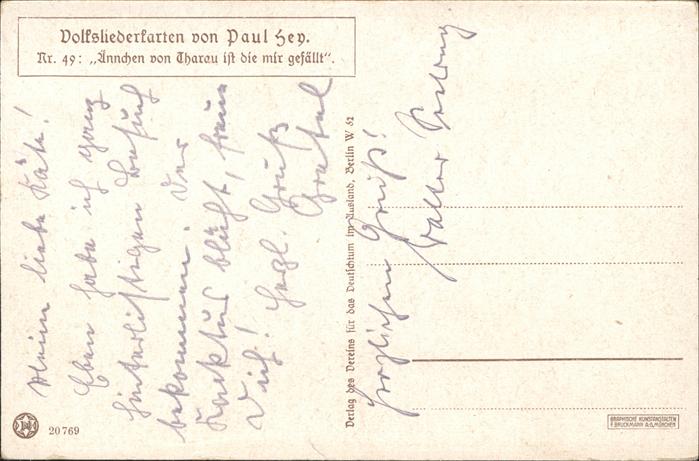 Volksliederkarten von Paul Hey.
Nr. 49: „Ännchen von Tharau ist die mir gefällt“.
Meine liebe Käte!
Eben habe ich ganz
hinterlistigen Besuch
bekommen. Der
Kaktus blüht, freue
Dich! Herzl. Gruß
Gretel
Verlag des Vereins für das Deutschtum im Ausland, Berlin W 62
Herzlichen Gruß!
Walter
20769
GRAPHISCHE KUNSTANSTALTEN
F. BRUCKMANN A.G. MÜNCHEN